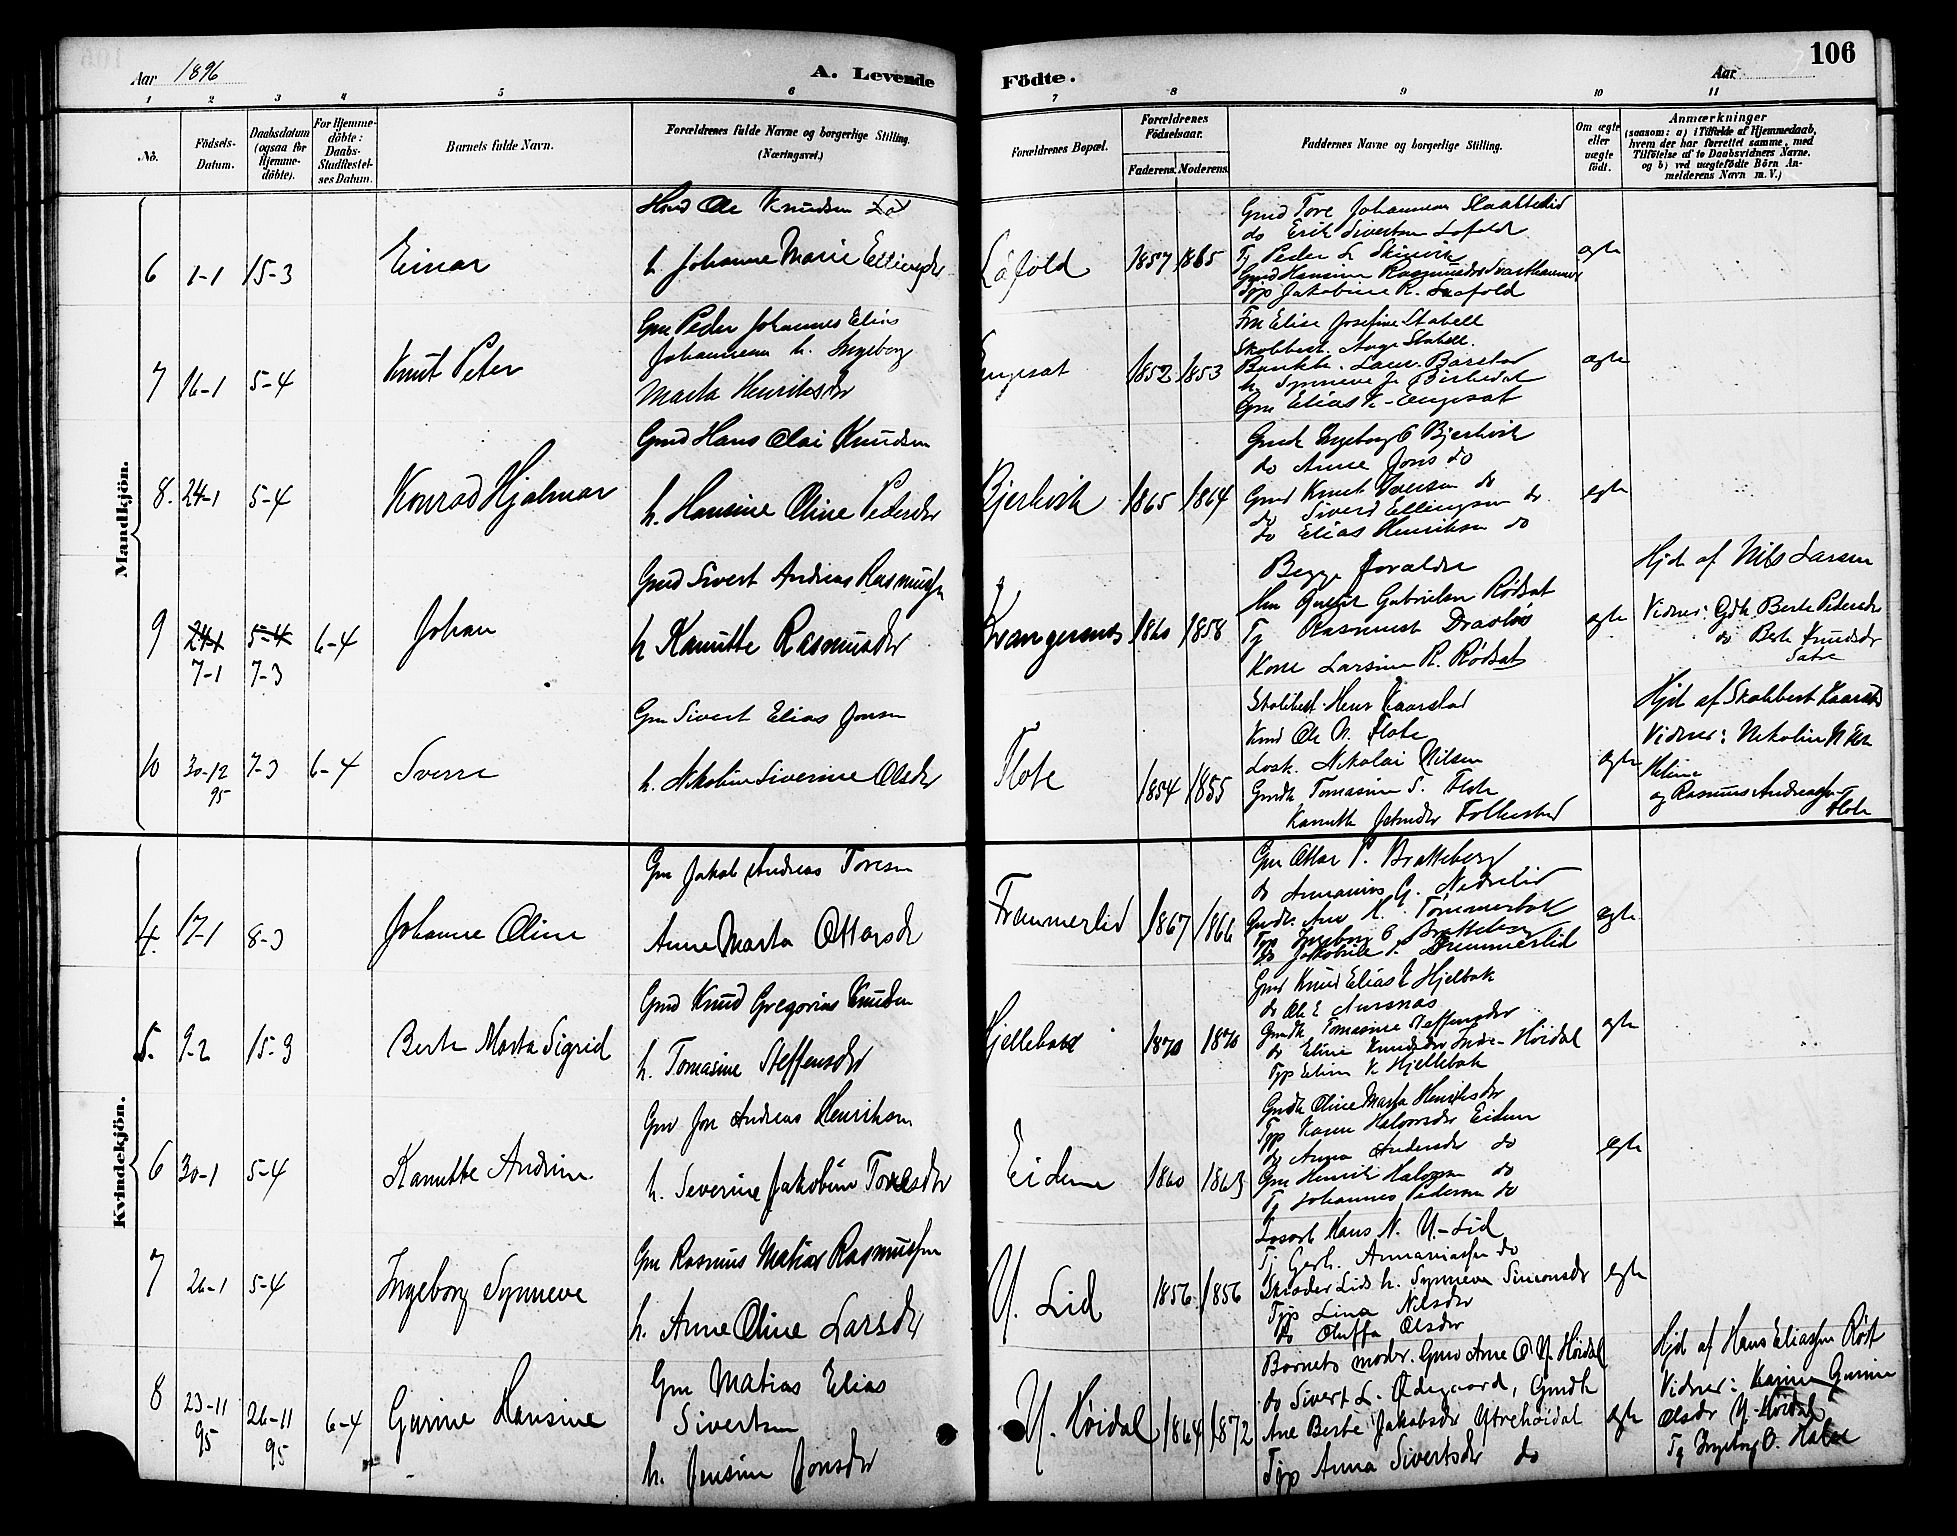 Aar 1896
A. Levende
Födte.
Aar
106
1 2 3 4 5 6 7 8 9 10 11
No.
Födsels-
Datum.
Daabsdatum
(ogsaa for
Hjemme-
döbte).
For Hjemme-
döbte:
Daabs-
Stadfæstel-
ses Datum.
Barnets fulde Navn.
Forældrenes fulde Navne og borgerlige Stilling.
(Næringsvei.)
Forældrenes Bopæl.
Forældrenes
Födselsaar.
Faderens. Moderens.
Faddernes Navne og borgerlige Stilling.
Om ægte
eller
uægte
født.
Anmærkninger
(saasom: a) i Tilfælde af Hjemmedaab,
hvem der har forrettet samme, med
Tilföielse af to Daabsvidners Navne,
og b) ved uægtefödte Börn An-
melderens Navn m. V.)
Mandkjön.
6 1-1 15-3
Einar
Ole Knudsen
h. Johanne Marie
Låfold
1857 1865
Gmd Tore Johannesen Slaattelid
do Erik Sivertsen Lofold
Tj Peder
Gmd Hansine Rasmusdr Svarthammer
Typ Jakobine R. Laafold
ægte
7 16-1 5-4
Knut Peter
Gm Peder Johannes Elias
Johannesen h. Ingeborg
Marta Henriksdr
Engesæt
1852 1853
Elise Josefine Stabell
Skolbest. Aage Stabell.
h. Synneve J. Birkedal
Gm Elias K- Engesæt
ægte
8. 24-1 5-4
Konrad Hjalmar
Gmd Hans Olai Knudsen
h. Hansine Oline Pedersdr
Bjerkvik
1865 1864
Gmdk Ingeborg O Bjerkvik
do Anne Jons do
Gmd Knut Iversen do
do Sivert Ellingsen do
do Elias Henriksen do
egte
9 24-1 5-4 6-4
7-1 7-3
Johan
Gmd Sivert Andreas Rasmussen
h Kanutte Rasmusdr
Kvangersnes
1860 1858
Begge forældre
Gabrielsen Rødsæt
Tj Rasmus Drasløs
Kone Larsine R. Rødsæt
ægte
Hjd af Nils Larsen
Vidner: Gdk Berte Pedersdr
do Berte Knudsdr
Sætre
10 30-12 7-3 6-4
95
Sverre
Gm Sivert Elias Jonsen
h. Nikoline Siverine Olsdr
Flote
1854 1855
Skolbest. Kaarstad
Ole N. Flote
Losk. Nikolai Nilsen
Gmdk Tomasine S. Flote
Kanutte Folkestad
ægte
Hjd af Skolbest Kaarstad
Vidner: Nikoline N Flote
og Rasmus Andreassen
Flote
Kvindekjön.
4. 17-1 8-3
Johanne Oline
Gm Jakob Andreas Toresen
Anne Marta Ottarsdr
Frammerlid
1867 1866
Gm Ottar P. Bratteberg
do Annanias G. Nedrelid
Gmdk. Ane K. Tømmerbak
Typ Ingeborg O Bratteberg
do Jakobine T. Frammerlid
ægte
5. 9-2 15-3
Berte Marta Sigrid
Gmd Knud Gregorius Knudsen
h. Tomasine Steffensdr
Hjellebak
1870 1870
Gmd Knud Elias E Hjelbak
do Ole E Aursnæs
Gmdk Tomasine Steffensdr
do Eline Knudsdr Indre-Høidal
Typ Eline K Hjellebak
ægte
6 30-1 5-4
Kanutte Andrine
Gm Jon Andreas Henriksen
h. Severine Jakobine Toresdr
Eidene
1860 1863
Gmdk Oline Marta Henriksdr
Typ Karen Halvorsdr Eidene
do Anna Andersdr do
Gm Henrik Halvorsen do
Tj Johannes Pedersen do
egte
7 26-1 5-4
Ingeborg Synneve
Gm Rasmus Matias Rasmussen
h. Anne Oline Larsdr
Y. Lid
1856 1856
Hans N. Y-Lid
Tj Gerh. Annaniassen do
Skræder Lids h. Synneve Simonsdr
Typ Lina Nilsdr
do Oluffa Olsdr
egte
8 23-11 26-11 6-4
95 95
Gurine Hansine
Gm Matias Elias
Sivertsen
h. Jensine Jonsdr
Y. Høidal
1864 1872
Barnets moder. Gmd Arne O Y. Høidal
do Sivert L. Ødegaard, Gmdk
Ane Berte Jakobsdr Ytrehøidal
Typ Anna Sivertsdr do
ægte
Hjd af Hans Eliassen Røst
Vidner: Karine Gurine
Olsdr Y-Høidal
Tj Ingeborg O.